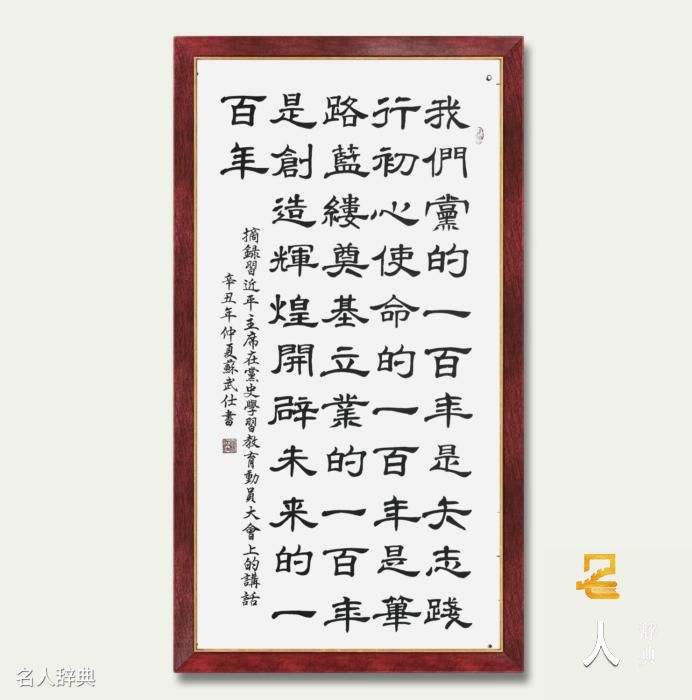 我們黨的一百年是矢志踐
行初心使命的一百年是篳
路藍縷奠基立業的一百年
是創造輝煌開辟未来的一
百年
摘録習近平主席在黨史學習教育動員大會上的講話
辛丑年仲夏蘇武仕書
名人辞典
名人辞典